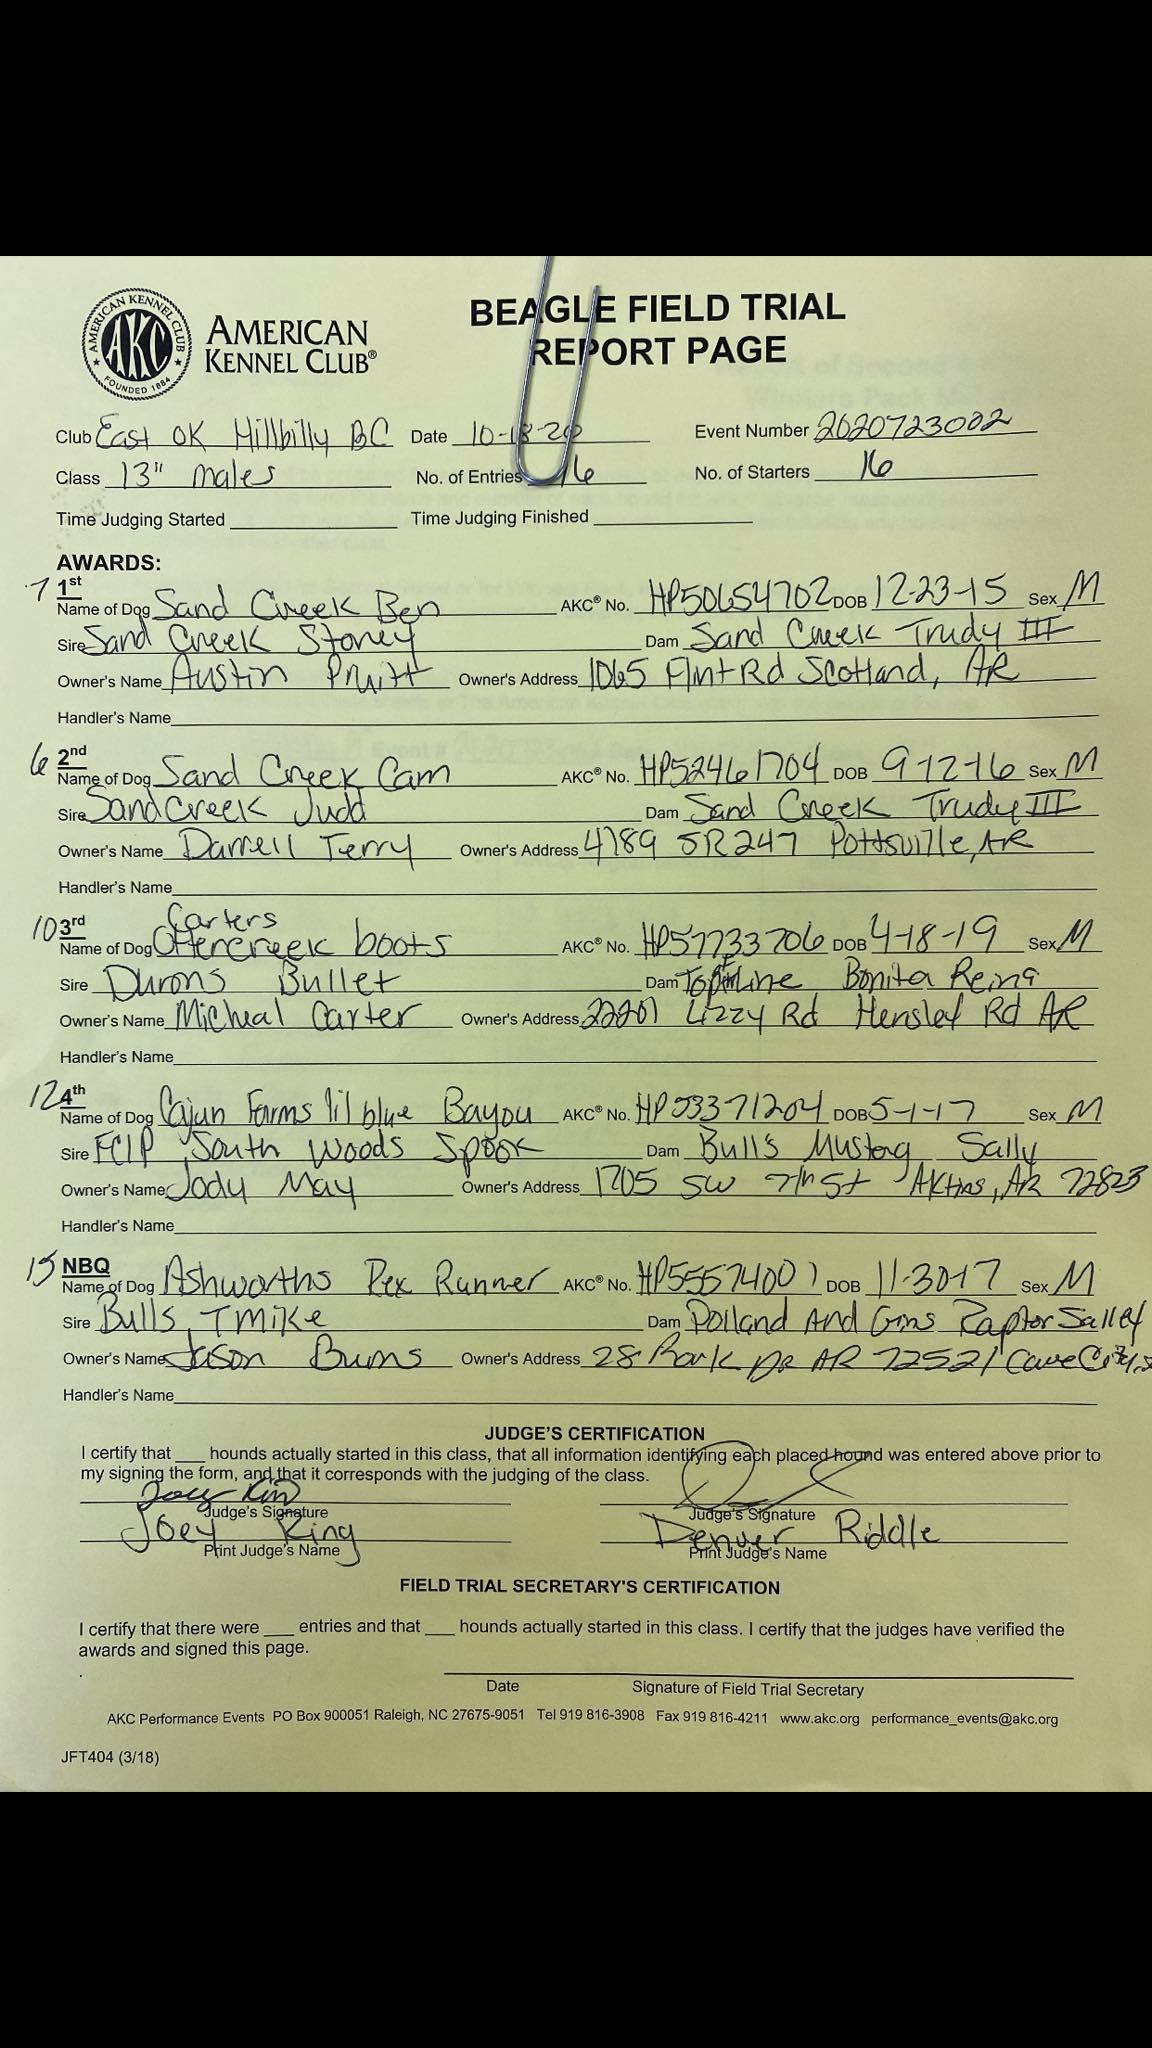 AMERICAN KENNEL CLUB
AKC
FOUNDED 1884
AMERICAN
KENNEL CLUB®
BEAGLE FIELD TRIAL
REPORT PAGE
Club East OK Hillbilly BC Date 10-18-20 Event Number 2020723002
Class 13" males No. of Entries 16 No. of Starters 16
Time Judging Started Time Judging Finished
AWARDS:
7 1st
Name of Dog Sand Creek Ben AKC® No. HP50654702 DOB 12-23-15 Sex M
Sire Sand Creek Stoney Dam Sand Creek Trudy III
Owner's Name Austin Pruitt Owner's Address 1065 Flint Rd Scotland, AR
Handler's Name
6 2nd
Name of Dog Sand Creek Cam AKC® No. HP52461704 DOB 9-12-16 Sex M
Sire Sand Creek Judd Dam Sand Creek Trudy III
Owner's Name Darrell Terry Owner's Address 4789 SR 247 Pottsville, AR
Handler's Name
10 3rd Carters
Name of Dog Ottercreek boots AKC® No. HP57733706 DOB 4-18-19 Sex M
Sire Durons Bullet Dam Line Bonita Reina
Owner's Name Micheal Carter Owner's Address 22201 Lizzy Rd Hensley Rd AR
Handler's Name
12 4th
Name of Dog Cajun Farms lil blue Bayou AKC® No. HP53371204 DOB 5-1-17 Sex M
Sire FCIP South Woods Spook Dam Bull's Mustang Sally
Owner's Name Jody May Owner's Address 1705 SW 7th St Aktins, AR 72823
Handler's Name
15 NBQ
Name of Dog Ashworths Rex Runner AKC® No. HP55574001 DOB 11-30-17 Sex M
Sire Bulls T Mike Dam Polland And Gins Raptor Salley
Owner's Name Jason Burns Owner's Address 28 Dr AR 72521 Cave City
Handler's Name
JUDGE'S CERTIFICATION
I certify that ___ hounds actually started in this class, that all information identifying each placed hound was entered above prior to
my signing the form, and that it corresponds with the judging of the class.
Joey King
Judge's Signature Judge's Signature
Joey King Denver Riddle
Print Judge's Name Print Judge's Name
FIELD TRIAL SECRETARY'S CERTIFICATION
I certify that there were ___ entries and that ___ hounds actually started in this class. I certify that the judges have verified the
awards and signed this page.
Date Signature of Field Trial Secretary
AKC Performance Events PO Box 900051 Raleigh, NC 27675-9051 Tel 919 816-3908 Fax 919 816-4211 www.akc.org performance_events@akc.org
JFT404 (3/18)